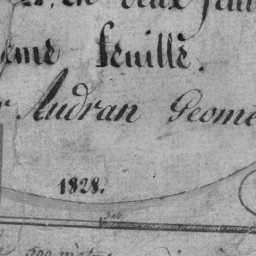 en deux feuil
eme feuille.
r Audran Geome
1828.